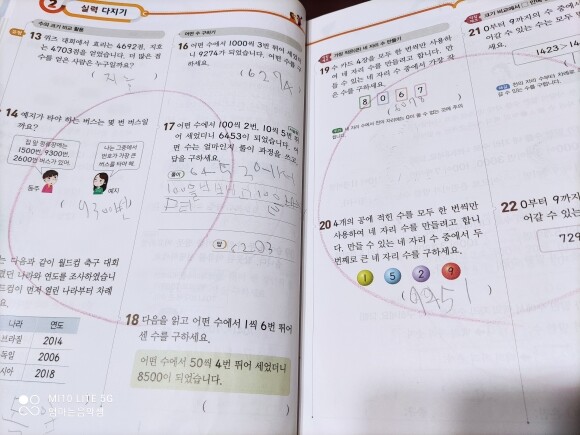 2 실력 다지기
수의 크기 비교 활용
13 퀴즈 대회에서 효라는 4692점, 지호
는 4703점을 얻었습니다. 더 많은 점
수를 얻은 사람은 누구일까요?
14 예지가 타야 하는 버스는 몇 번 버스일
까요?
집 앞 정류장에는
1500번, 9300번,
2600번 버스가 있어.
나는 그중에서
번호가 가장 큰
버스를 타야 해.
동주
예지
는 다음과 같이 월드컵 축구 대회
렸던 나라와 연도를 조사하였습니
드컵이 먼저 열린 나라부터 차례
요.
나라 연도
브라질 2014
독일 2006
시아 2018
어떤 수 구하기
16 어떤 수에서 1000씩 3번 뛰어 세었더
니 9274가 되었습니다. 어떤 수를 구
하세요.
(6274)
17 어떤 수에서 100씩 2번, 10씩 5번
어 세었더니 6453이 되었습니다.
수는 얼마인지 풀이 과정을 쓰고
답을 구하세요.
풀이
답 6203
18 다음을 읽고 어떤 수에서 1씩 6번 뛰어
센 수를 구하세요.
어떤 수에서 50씩 4번 뛰어 세었더니
8500이 되었습니다.
가장 작은(큰) 네 자리 수 만들기
19 수 카드 4장을 모두 한 번씩만 사용하
여 네 자리 수를 만들려고 합니다. 만
들 수 있는 네 자리 수 중에서 가장 작
은 수를 구하세요.
8 0 6 7
(6078)
20 4개의 공에 적힌 수를 모두 한 번씩만
사용하여 네 자리 수를 만들려고 합니
다. 만들 수 있는 네 자리 수 중에서 두
번째로 큰 네 자리 수를 구하세요.
1 5 2 9
21 0부터 9까지의 수 중에서
어갈 수 있는 수는 모두
1423>14
22 0부터 9까지의
어갈 수 있는
729
MI 10 LITE 5G